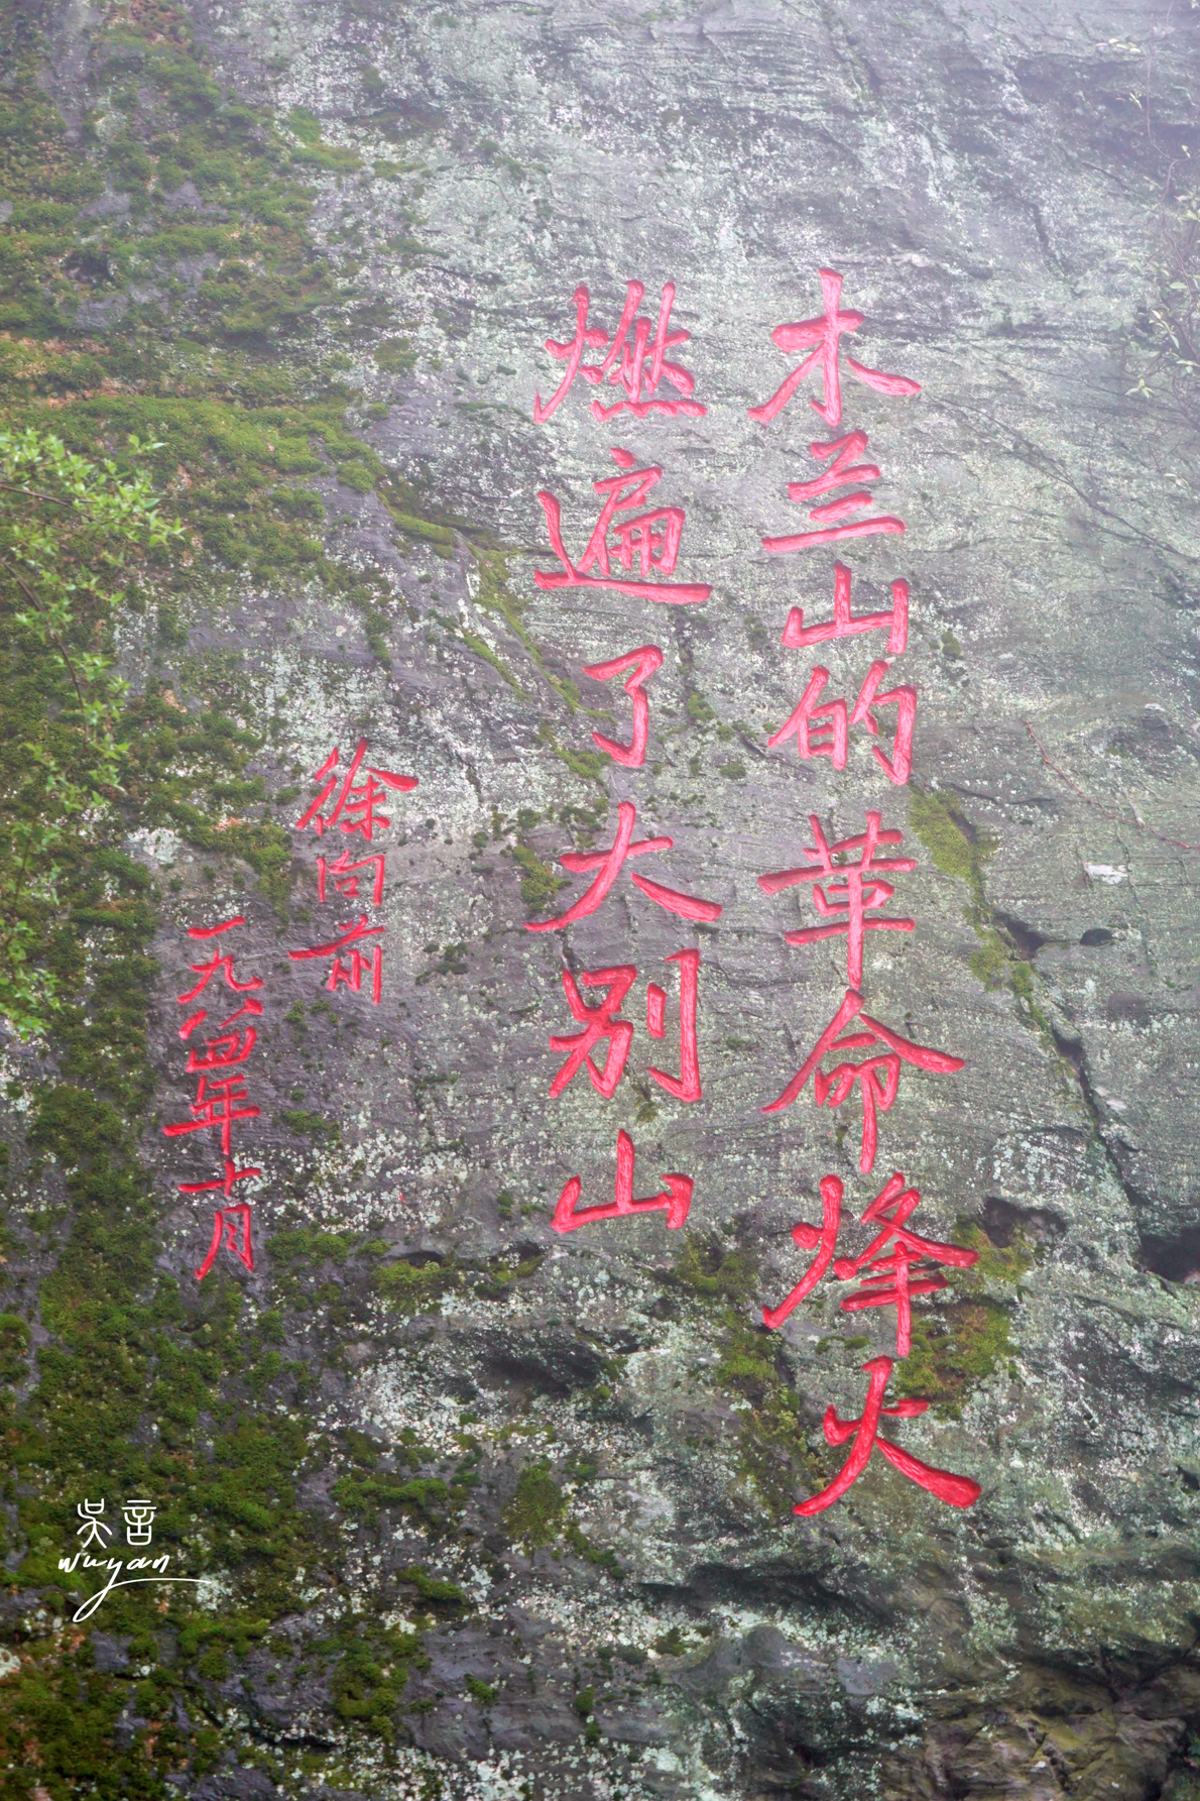 木兰山的革命烽火
燃遍了大别山
徐向前
一九八四年十月
吴言
wuyan